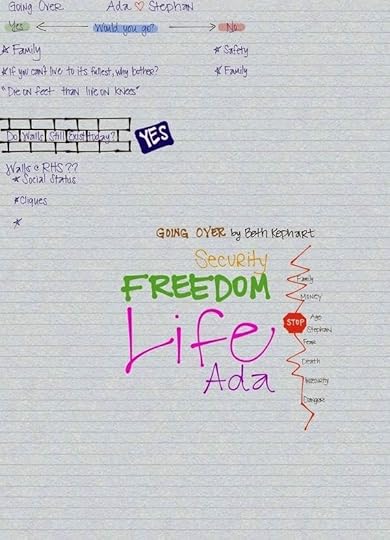 Going Over Ada ♡ Stephan
Yes Would you go? No
* Family
* Safety
* If you can't live to its fullest, why bother?
* Family
"Die on feet than live on knees"
Do Walls Still Exist today?
YES
Walls @ RHS ??
* Social Status
* Cliques
*
GOING OVER by Beth Kephart
Security
FREEDOM
Life
Ada
Family
Money
STOP
Age
Stephan
Fear
Death
Insecurity
Danger